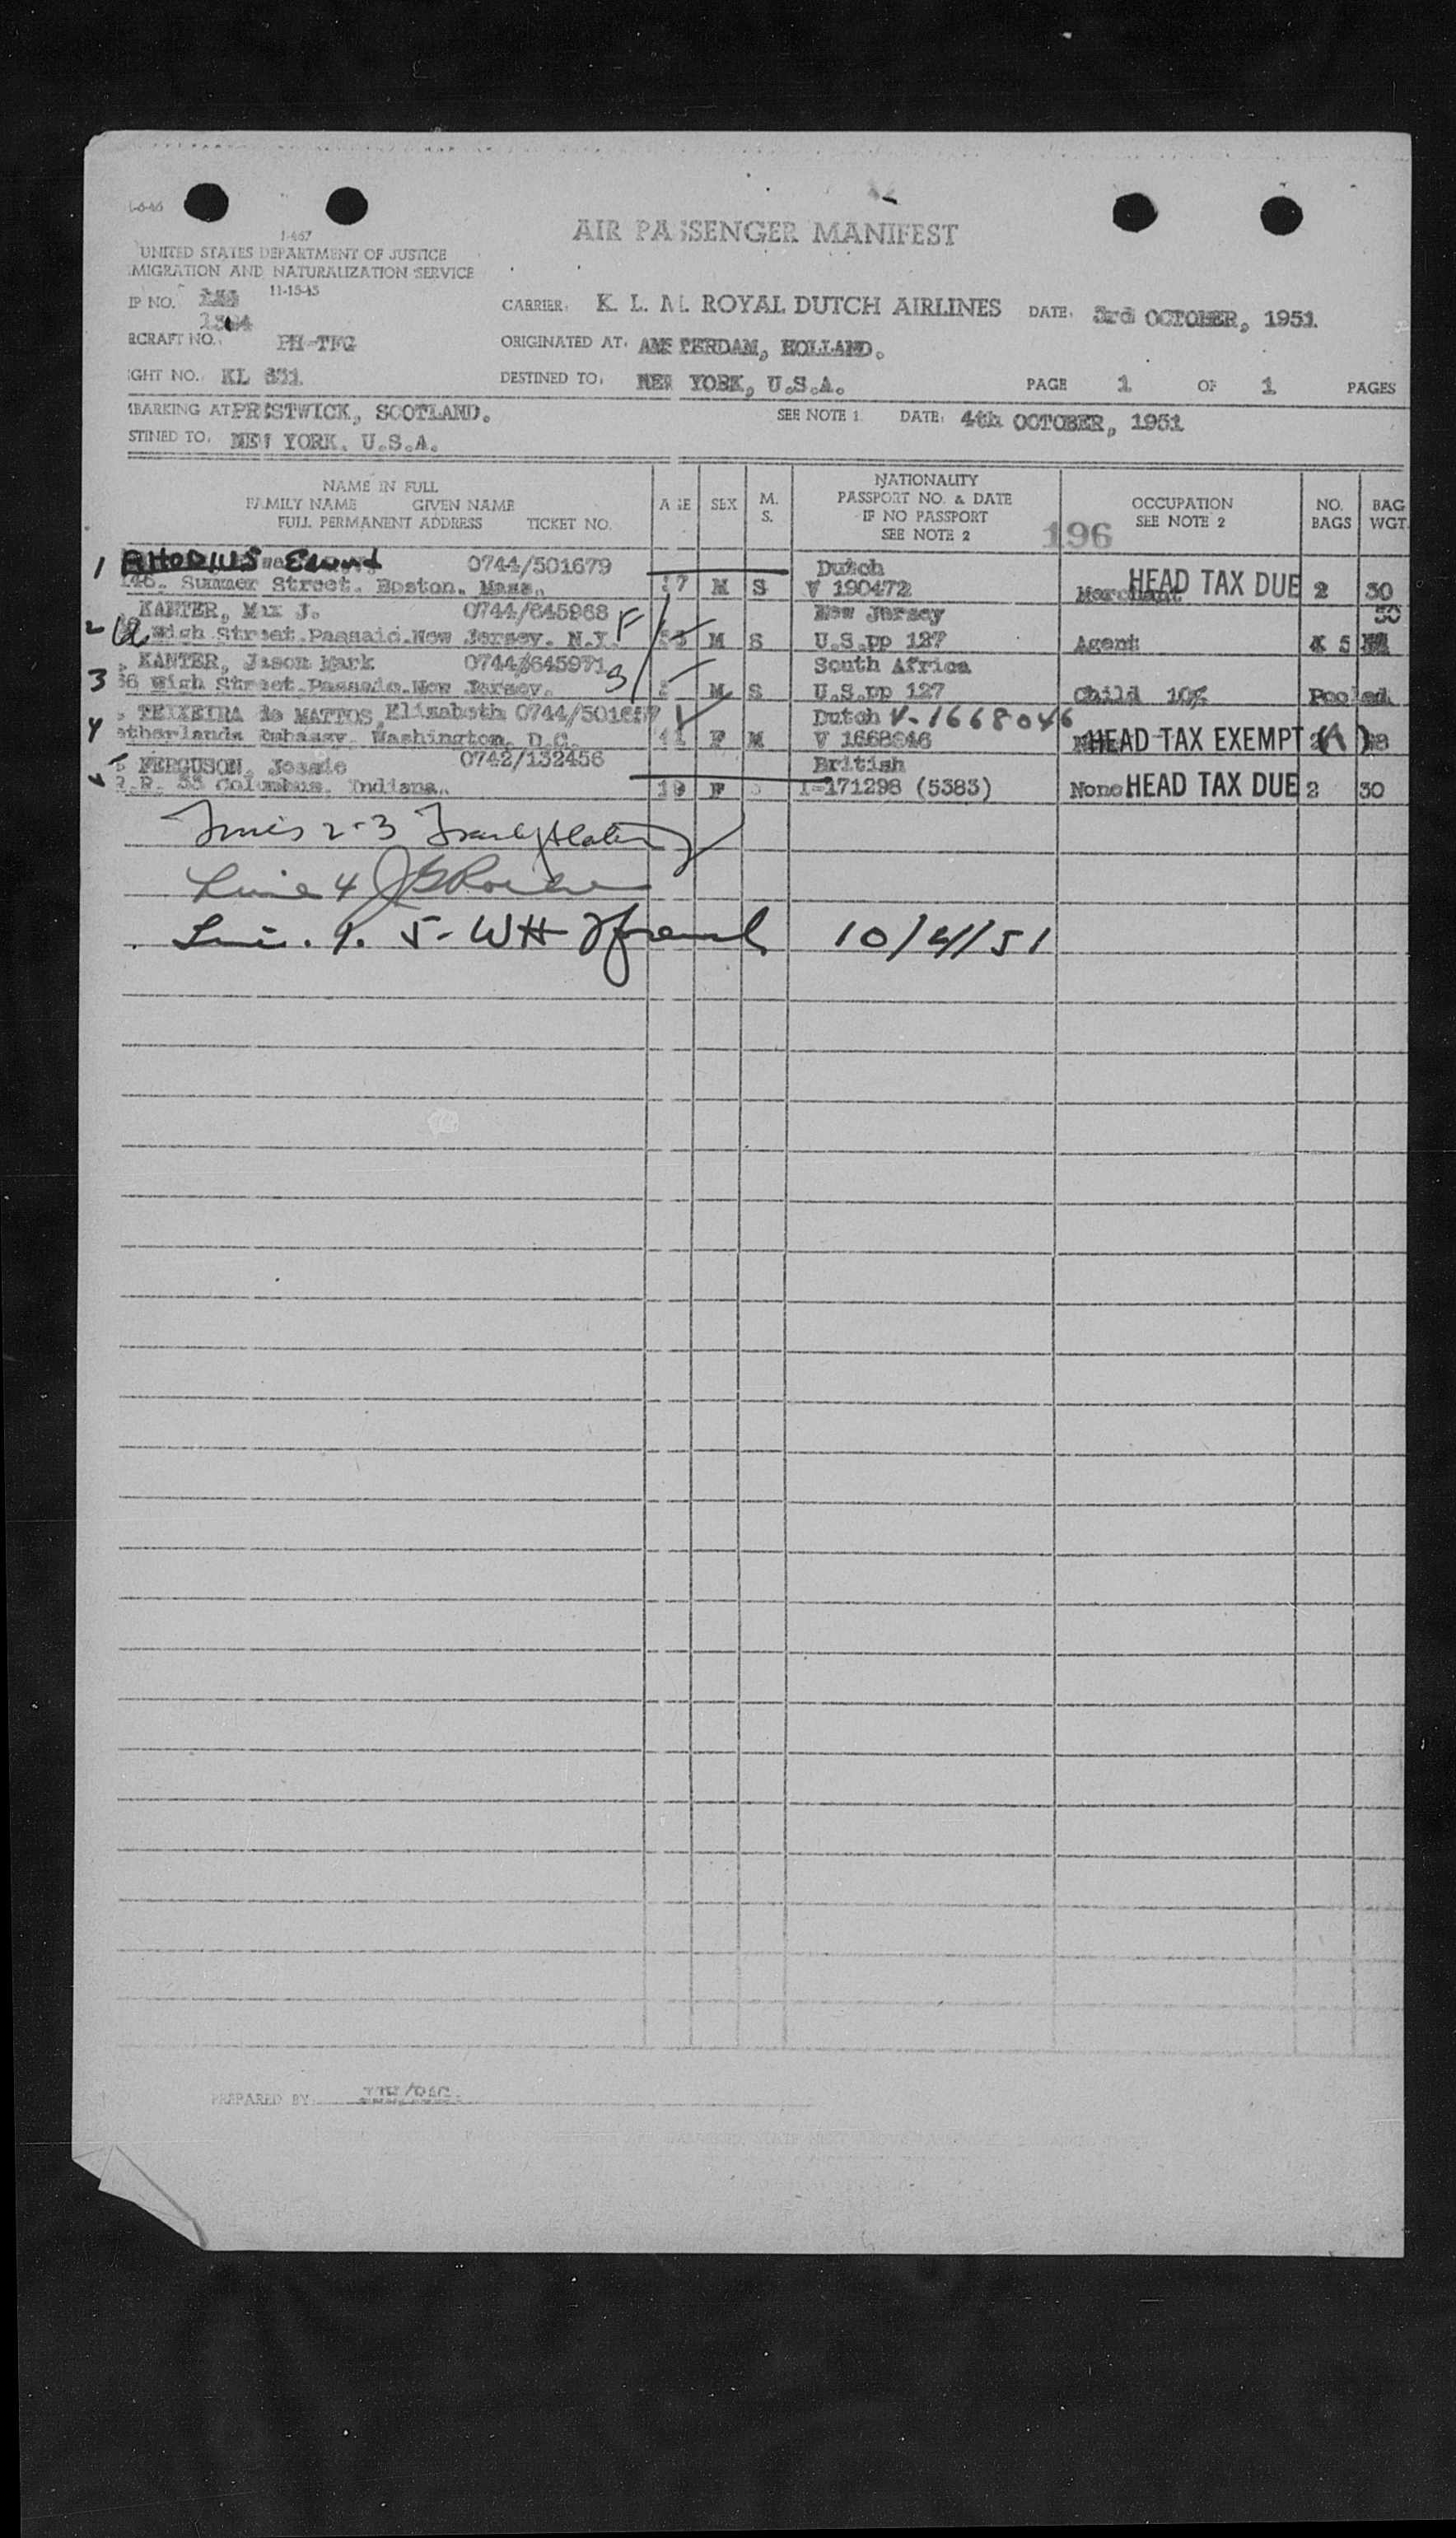 1-6-46
AIR PASSENGER MANIFEST
I-467
UNITED STATES DEPARTMENT OF JUSTICE
MIGRATION AND NATURALIZATION SERVICE
11-15-45
IP NO.
CARRIER: K. L. M. ROYAL DUTCH AIRLINES DATE: 3rd OCTOBER, 1951
RCRAFT NO. PH-TFG ORIGINATED AT: AMSTERDAM, HOLLAND.
IGHT NO. KL 631 DESTINED TO: NEW YORK, U.S.A. PAGE 1 OF 1 PAGES
BARKING AT PRESTWICK, SCOTLAND. SEE NOTE 1. DATE: 4th OCTOBER, 1951
STINED TO: NEW YORK, U.S.A.
NAME IN FULL
FAMILY NAME GIVEN NAME
FULL PERMANENT ADDRESS TICKET NO.
AGE SEX M. S.
NATIONALITY
PASSPORT NO. & DATE
IF NO PASSPORT
SEE NOTE 2
OCCUPATION
SEE NOTE 2
NO. BAGS
BAG WGT.
196
1 RHODIUS 0744/501679 Dutch
146, Summer Street, Boston, Mass. 7 M S V 190472 Merchant HEAD TAX DUE 2 30
KANTER, Max J. 0744/645968 F New Jersey 50
2 High Street, Passaic, New Jersey, N.Y. M S U.S.pp 127 Agent 5
KANTER, Jason Mark 0744/645971 South Africa
3 36 High Street, Passade, New Jersey. M S U.S.pp 127 Child 10% Pooled
TEIXEIRA de MATTOS, Elizabeth 0744/501657 Dutch V-1668046
4 etherlands Embassy, Washington, D.C. F M V 1668046 HEAD TAX EXEMPT (A)
5 FERGUSON, Jessie 0742/132456 British
R.R. 38 Columbus, Indiana. 19 F I-171298 (5383) None HEAD TAX DUE 2 30
Lines 2-3
Line 4
Line 1. 5- WH French 10/4/51
PREPARED BY: